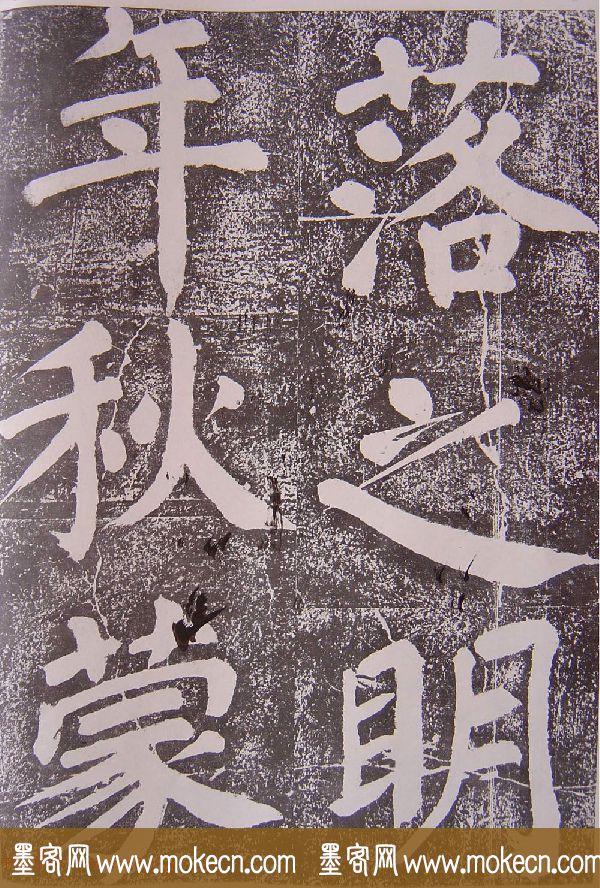 落之明
年秋蒙
墨客网 www.mokecn.com 墨客网 www.mokecn.com